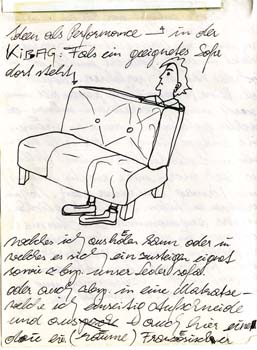 Ideen als Performance – in der
KIBAG: Falls ein geeignetes Sofa
dort steht
welches ich aushölen kann oder in
welches es sich einzusteigen eignet
sowie z.b. unser Ledersofa.
oder auch z.b. in eine Matratze –
welche ich einseitig Aufschneide
und und auch hier eine
(räume) Französischer